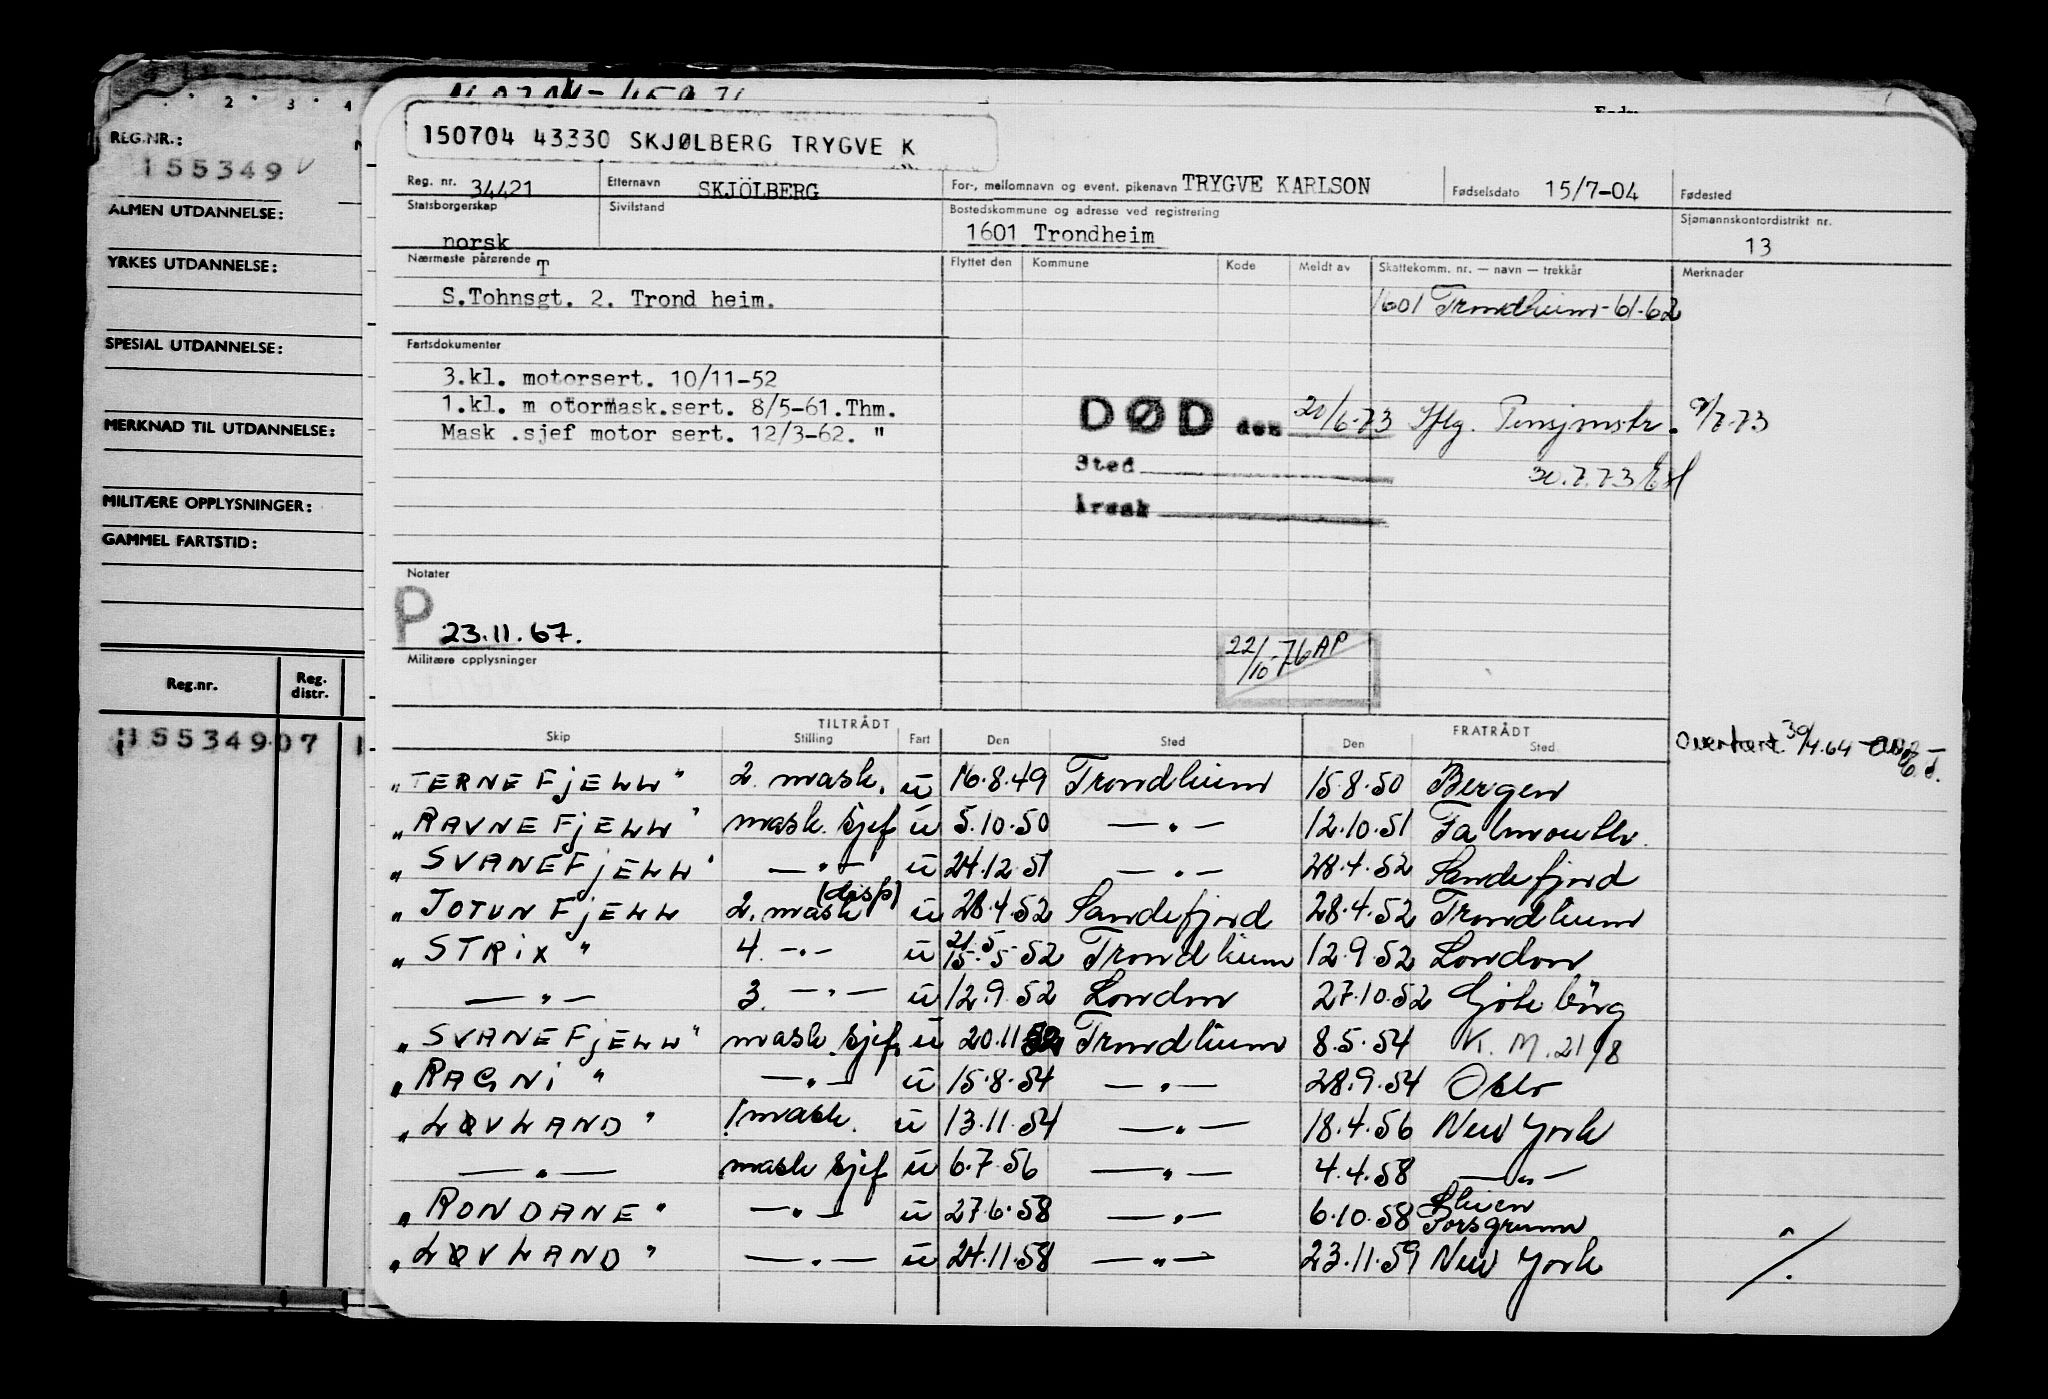 2 3 4
REG.NR.:
155349
ALMEN UTDANNELSE:
YRKES UTDANNELSE:
SPESIAL UTDANNELSE:
MERKNAD TIL UTDANNELSE:
MILITÆRE OPPLYSNINGER:
GAMMEL FARTSTID:
Reg.nr. Reg. distr.
155349 07
150704 43330 SKJØLBERG TRYGVE K
Reg. nr. 34421 Etternavn SKJÖLBERG For-, mellomnavn og event. pikenavn TRYGVE KARLSON Fødselsdato 15/7-04 Fødested
Statsborgerskap Sivilstand Bostedskommune og adresse ved registrering Sjømannskontordistrikt nr.
norsk 1601 Trondheim 13
Nærmeste pårørende T Flyttet den Kommune Kode Meldt av Skattekomm. nr. — navn — trekkår Merknader
S.Tohnsgt. 2. Trond heim. 1601 Trondheim-61-62
Fartsdokumenter
3.kl. motorsert. 10/11-52
1.kl. m otormask.sert. 8/5-61.Thm.
Mask .sjef motor sert. 12/3-62. "
DØD den 20/6-73 Iflg. Pensjonstr. 9/7-73
Sted 30.7.73
Årsak
Notater
P 23.11.67.
22/10-76 AP
Militære opplysninger
TILTRÅDT FRATRÅDT
Skip Stilling Fart Den Sted Den Sted
Overført 30/4.64
"TERNEFJELL" 2. mask. u 16.8.49 Trondheim 15.8.50 Bergen
"RAVNEFJELL" mask. sjef u 5.10.50 —"— 12.10.51 Falmouth
"SVANEFJELL" —"— u 24.12.51 —"— 28.4.52 Sandefjord
"JOTUNFJELL 2. mask (disp) u 28.4.52 Sandefjord 28.4.52 Trondheim
"STRIX" 4. —"— u 21.5 15.5-52 Trondheim 12.9.52 London
—"— 3. —"— u 12.9.52 London 27.10.52 Göteborg
"SVANEFJELL" mask. sjef u 20.11.52 Trondheim 8.5.54 K.M.21/8
"RAGNI" —"— u 15.8.54 —"— 28.9.54 Oslo
"LØVLAND" 1 mask. u 13.11.54 —"— 18.4.56 New York
—"— mask sjef u 6.7.56 —"— 4.4.58 —"—
"RONDANE" —"— u 27.6.58 —"— 6.10.58 Skien Porsgrunn
"LØVLAND" —"— u 24.11.58 —"— 23.11.59 New York